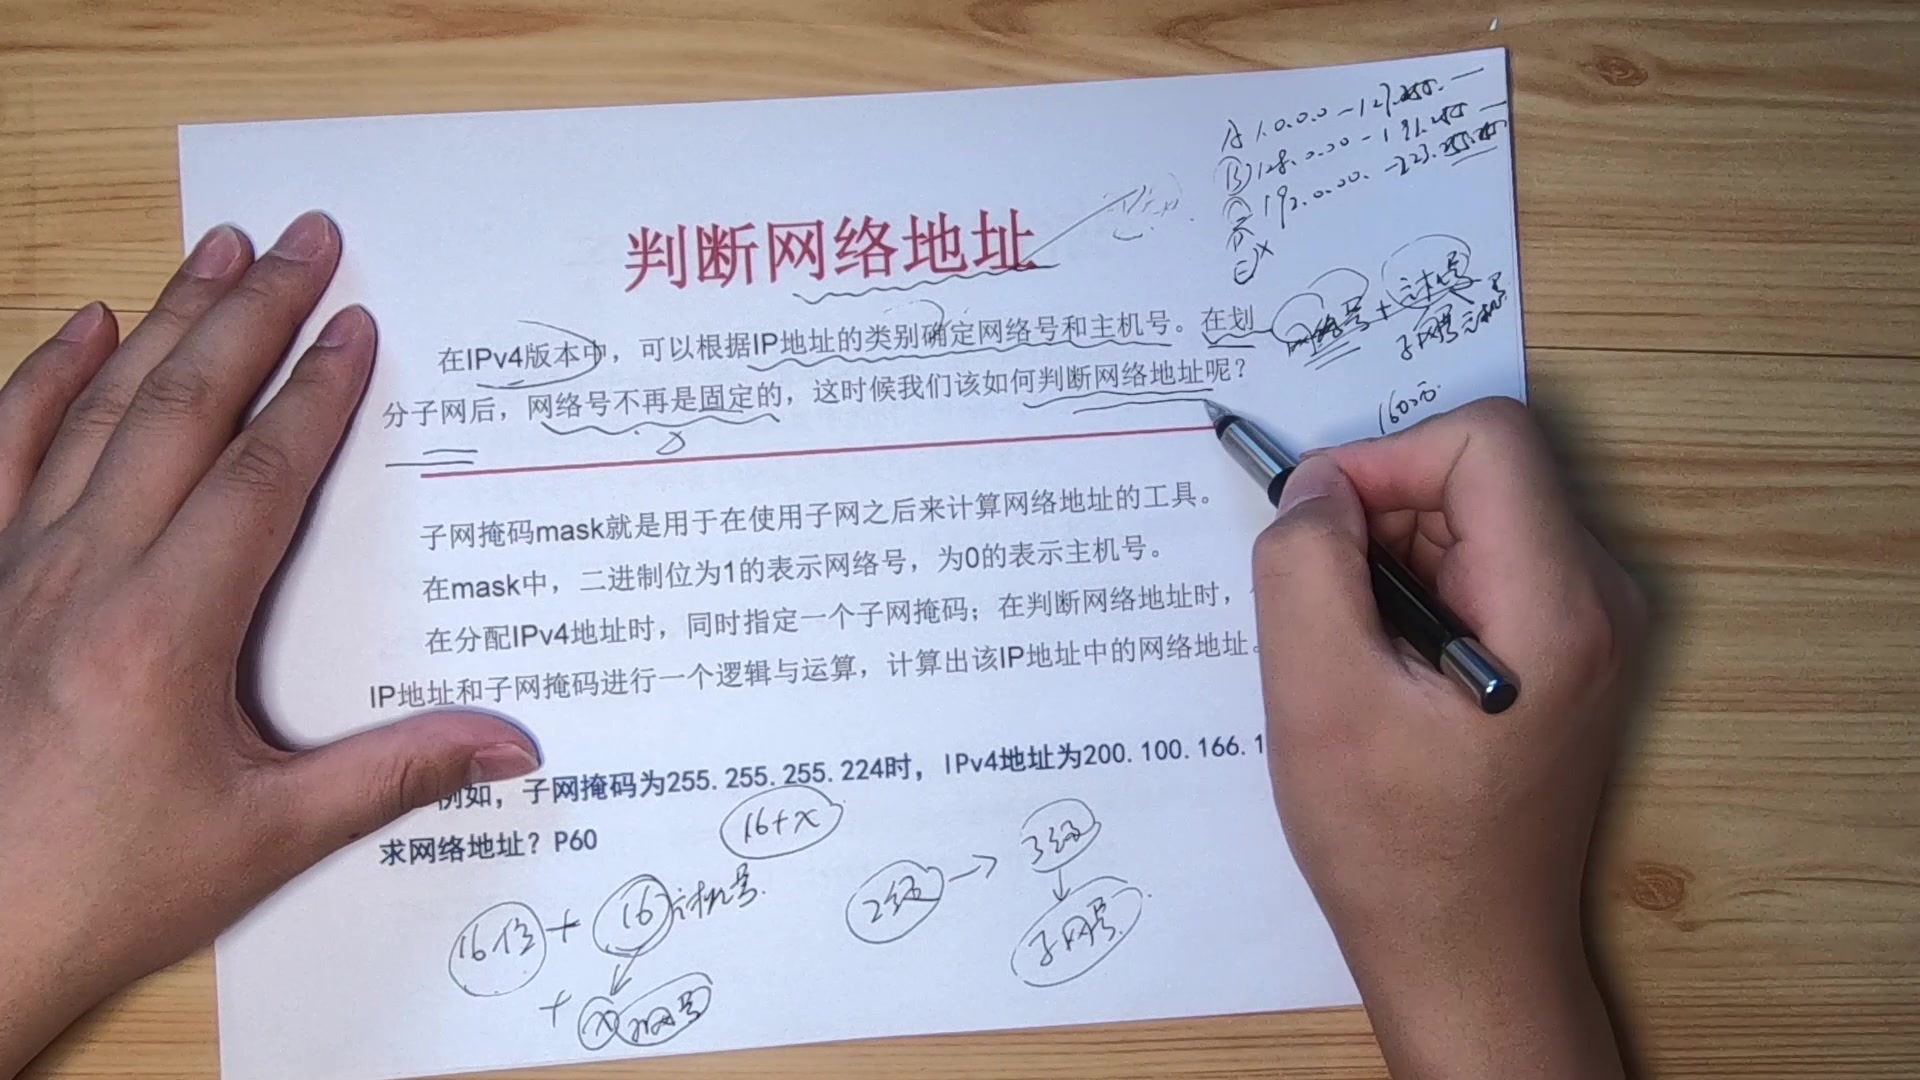 判断网络地址
在IPv4版本中，可以根据IP地址的类别确定网络号和主机号。在划
分子网后，网络号不再是固定的，这时候我们该如何判断网络地址呢？
子网掩码mask就是用于在使用子网之后来计算网络地址的工具。
在mask中，二进制位为1的表示网络号，为0的表示主机号。
在分配IPv4地址时，同时指定一个子网掩码；在判断网络地址时，
IP地址和子网掩码进行一个逻辑与运算，计算出该IP地址中的网络地址。
例如，子网掩码为255.255.255.224时，IPv4地址为200.100.166.1
求网络地址？P60
A 1.0.0.0 - 127.255.
B 128.0.0.0 - 191.255
192.0.0.0. - 223.255.255
E X
网络号 + 主机号
子网号 主机号
16+x
2级 → 3级
子网号
16位 + 16 主机号.
+ x 子网号